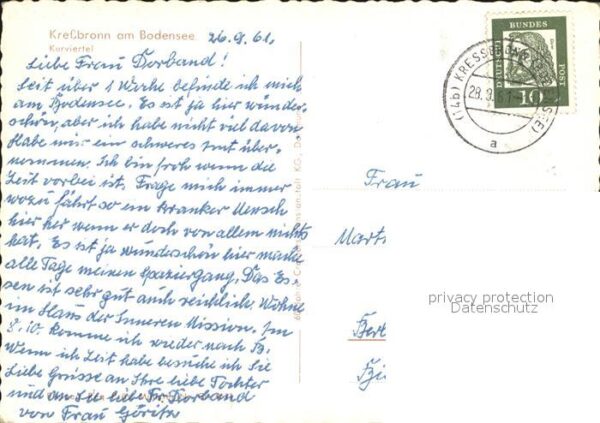 Kreßbronn am Bodensee 26.9.61.
Kurviertel
Liebe Frau Dorband!
Seit über 1 Woche befinde ich mich
am Bodensee. Es ist ja hier wunder-
schön, aber ich habe nicht viel davon
Habe mir ein schweres Amt über-
nommen. Ich bin froh wenn die
Zeit vorbei ist. Frage mich immer
wozu fährt so ein kranker Mensch
hier her wenn er doch von allem nichts
hat. Es ist ja wunderschön hier mache
alle Tage meinen Spaziergang. Das Es-
sen ist sehr gut auch reichlich. Wohne
im Haus der Inneren Mission. Im
8.10. komme ich wieder nach B.
Wenn ich Zeit habe besuche ich Sie
Liebe Grüsse an Ihre liebe Tochter
und an Sie liebe Fr. Dorband
von Frau Göritz
DEUTSCHE BUNDES POST
10
(14b) KRESSBRONN (BODENSEE)
a
Frau
Mart
Berl
privacy protection
Datenschutz